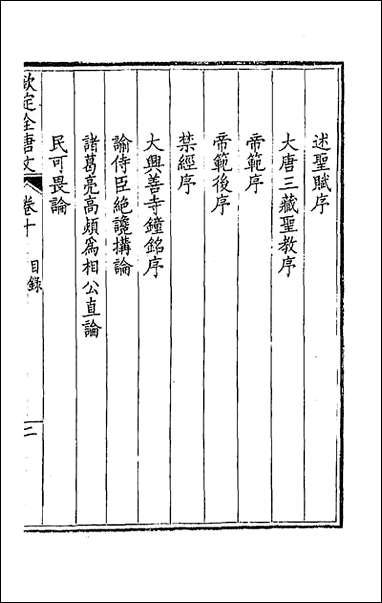 述聖賦序
大唐三藏聖教序
帝範序
帝範後序
禁經序
大興善寺鐘銘序
諭侍臣絶讒搆論
諸葛亮高熲爲相公直論
民可畏論
欽定全唐文 卷十 目錄 二